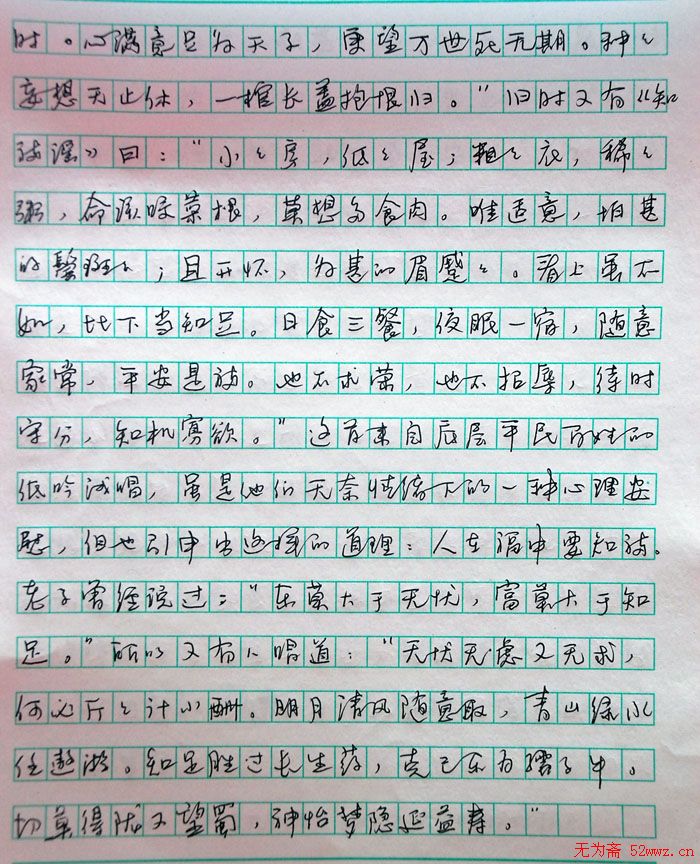 时。心满意足为天子，更望万世死无期。种々
妄想无止休，一棺长盖抱恨归。”旧时又有《知
福谣》曰：“小々房，低々屋；粗々衣，稀々
粥，命该咬菜根，莫想多食肉。唯适意，怕甚
的鬓斑々；且开怀，为甚的眉蹙々。看上虽不
如，比下当知足。日食三餐，夜眠一宿，随意
家常，平安是福。也不求荣，也不招辱，待时
守分，知机寡欲。”这首来自底层平民百姓的
低吟浅唱，虽是他们无奈情绪下的一种心理安
慰，但也引申出这样的道理：人在福中要知福。
老子曾经说过：“乐莫大于无忧，富莫大于知
足。”所以又有人唱道：“无忧无虑又无求，
何必斤々计小酬。明月清风随意取，青山绿水
任遨游。知足胜过长生药，克己乐为孺子牛。
切莫得陇又望蜀，神怡梦隐延益寿。”
无为斋 52wwz.cn